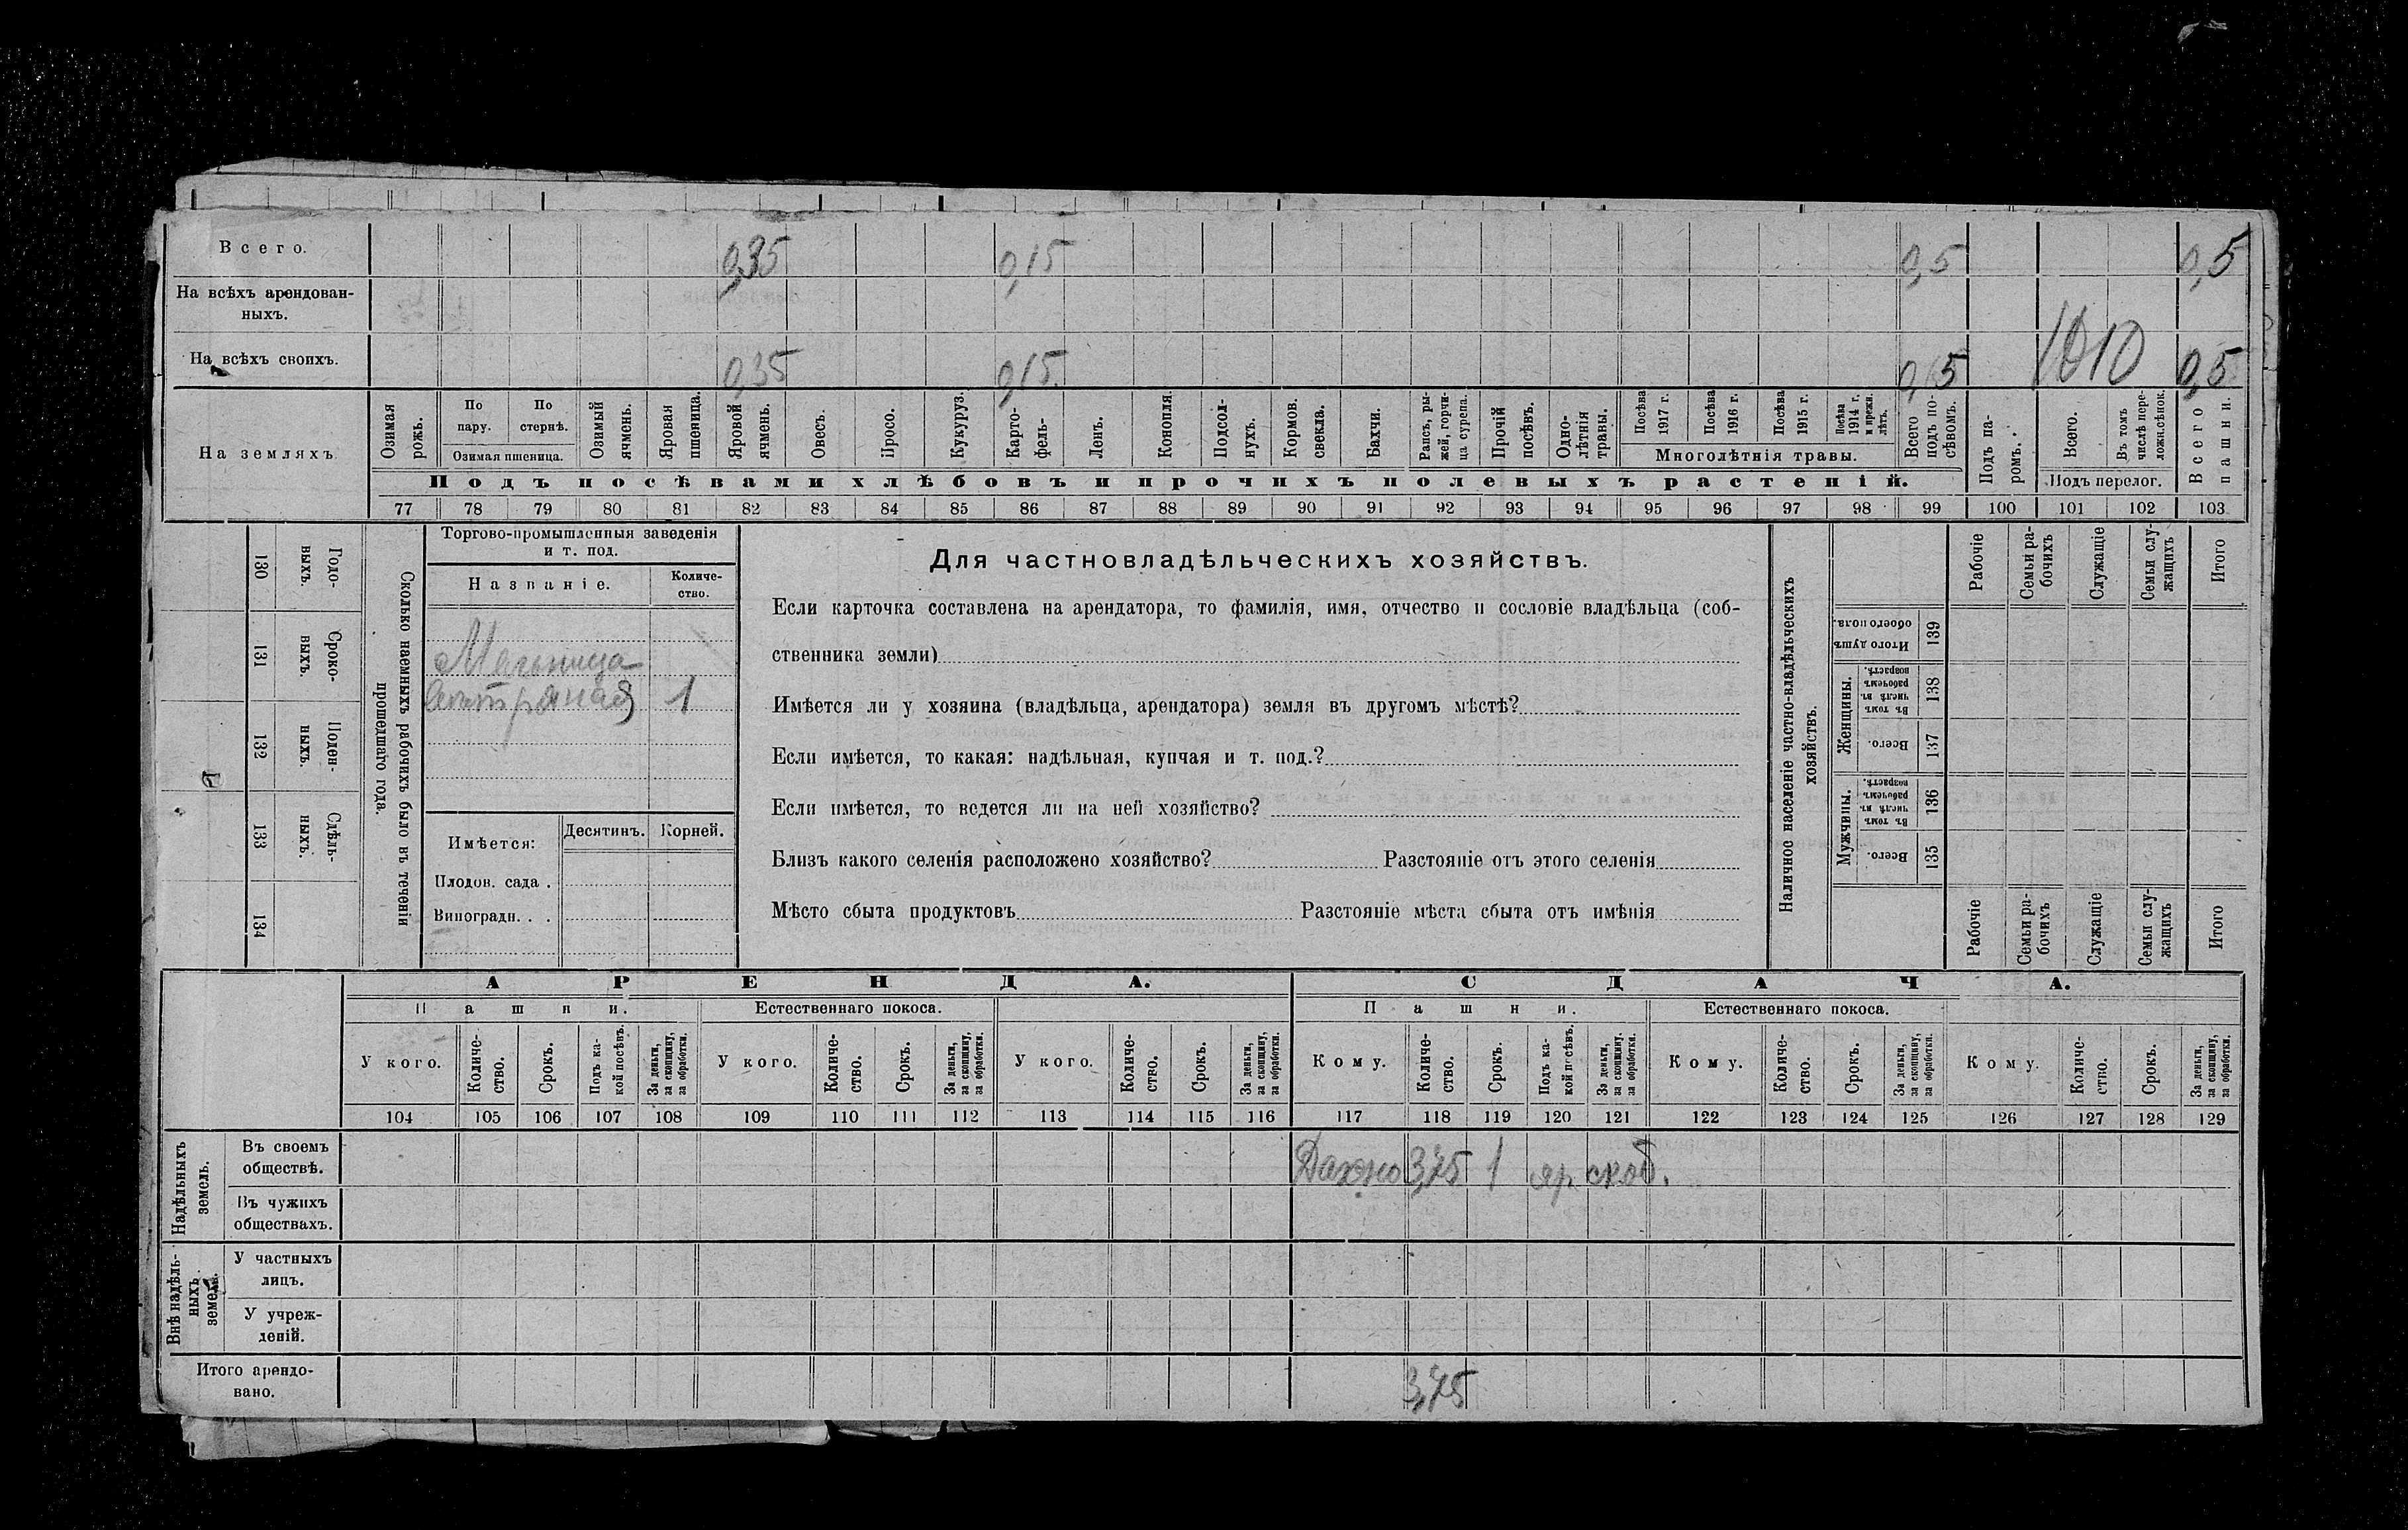 Всего. 0,35 0,15 0,5 0,5
На всѣхъ арендован-
ныхъ.
На всѣхъ своихъ. 0,35 0,15 0,5 1010 0,5
На земляхъ
Озимая рожь.
По пару.
По стернѣ.
Озимая пшеница.
Озимый ячмень.
Яровая пшеница.
Яровой ячмень.
Овесъ.
Просо.
Кукуруз.
Карто-
фель-
Ленъ.
Конопля.
Подсол-
нухъ.
Кормов.
свекла.
Бахчи.
Рапсъ, ры-
жей, горчи-
ца сурепа.
Прочій
посѣвъ.
Одно-
лѣтнія
травы.
Посѣва
1917 г.
Посѣва
1916 г.
Посѣва
1915 г.
Посѣва
1914 г.
и прежн.
лѣтъ.
Многолѣтнія травы.
Всего
подъ по-
сѣвомъ.
Подъ па-
ромъ.
Всего.
Въ томъ
числѣ пере-
ложн.сѣнок.
Подъ перелог.
Всего
пашни.
Подъ посѣвами хлѣбовъ и прочихъ полевыхъ растеній.
77 78 79 80 81 82 83 84 85 86 87 88 89 90 91 92 93 94 95 96 97 98 99 100 101 102 103
130 Годо-
выхъ.
131 Сроко-
выхъ.
132 Поден-
ныхъ.
133 Сдѣль-
ныхъ.
134
Сколько наемныхъ рабочихъ было въ теченіи
прошедшаго года.
Торгово-промышленныя заведенія
и т. под.
Названіе.
Количе-
ство.
Мельница
1
Имѣется:
Десятинъ.
Корней.
Плодов. сада .
Виноградн. . .
Для частновладѣльческихъ хозяйствъ.
Если карточка составлена на арендатора, то фамилія, имя, отчество и сословіе владѣльца (соб-
ственника земли)
Имѣется ли у хозяина (владѣльца, арендатора) земля въ другомъ мѣстѣ?
Если имѣется, то какая: надѣльная, купчая и т. под.?
Если имѣется, то ведется ли на ней хозяйство?
Близъ какого селенія расположено хозяйство? Разстояніе отъ этого селенія
Мѣсто сбыта продуктовъ Разстояніе мѣста сбыта отъ имѣнія
Наличное населеніе частно-владѣльческихъ
хозяйствъ.
Рабочіе
Семьи ра-
бочихъ
Служащіе
Семьи слу-
жащихъ
Итого
Итого душъ
обоего пола.
139
Женщины.
Въ томъ
числѣ въ
рабочемъ
возрастѣ.
138
Всего.
137
Мужчины.
Въ томъ
числѣ въ
рабочемъ
возрастѣ.
136
Всего.
135
Рабочіе
Семьи ра-
бочихъ
Служащіе
Семьи слу-
жащихъ
Итого
АРЕНДА. СДАЧА.
Пашни. Естественнаго покоса. Пашни. Естественнаго покоса.
У кого.
Количе-
ство.
Срокъ.
Подъ ка-
кой посѣвъ.
За деньги,
за скопщину,
за обработки.
У кого.
Количе-
ство.
Срокъ.
За деньги,
за скопщину,
за обработки.
У кого.
Количе-
ство.
Срокъ.
За деньги,
за скопщину,
за обработки.
Кому.
Количе-
ство.
Срокъ.
Подъ ка-
кой посѣвъ.
За деньги,
за скопщину,
за обработки.
Кому.
Количе-
ство.
Срокъ.
За деньги,
за скопщину,
за обработки.
Кому.
Количе-
ство.
Срокъ.
За деньги,
за скопщину,
за обработки.
104 105 106 107 108 109 110 111 112 113 114 115 116 117 118 119 120 121 122 123 124 125 126 127 128 129
Надѣльныхъ
земель.
Въ своемъ
обществѣ.
Дахно 3,75 1 яр
Въ чужихъ
обществахъ.
Внѣ надѣль-
ныхъ
земель.
У частныхъ
лицъ.
У учреж-
деній.
Итого арендо-
вано.
3,75